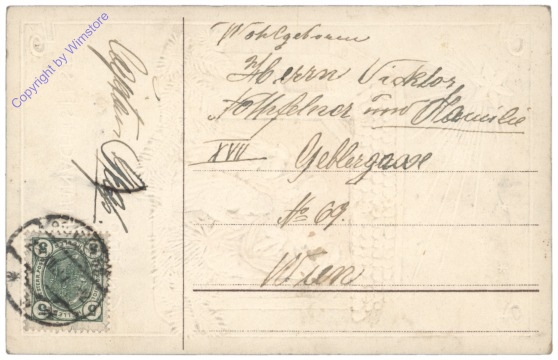 Copyright by Wimstore
Wohlgeboren
Herrn Vicktor
und Familie
XVII Geblergasse
No 69.
Wien